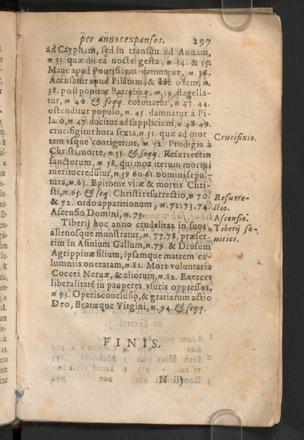 per annos expansos. 297
ad Caypham, sed in transitu ad Annam,
n 33. quæ ibi ea nocte gesta, n 34. & 35.
Mane apud Pontificem damnatur, n. 36.
Accusatur apud Pilatum, & He odem, n.
38. post ponitur Barrabbæ, n. 39. flagella-
tur, n 40. & seqq. coronatur, n 43. 44.
ostenditur populo, n 45. damnatur à Pi-
lato, n 47. ducitur ad supplicium, n 48. 49.
crucifigitur hora sexta, n 51. quæ ad mor-
tem usque contigerint, n. 52. Prodigia à
Christi morte, n. 55. & seqq. Resurrectio
sanctorum, n 58. qui mox iterum mortui
merito creduntur, n. 59 60 61. Domini sepul-
tura, n. 63. Epitome vitæ & mortis Chri-
sti, n. 65. & seq. Christi resurrectio, n 70.
& 71. ordo apparitionum, n 72. 73. 74
Ascensio Domini, n. 75.
Crucifixio.
Resurre-
ctio.
Ascensio.
Tiberij hoc anno crudelitas in suos,
alienosque monstratur, n. 77. 78. præser-
tim in Asinium Gallum, n. 79. & Drusum
Agrippinæ filium, ipsamque matrem ca-
lumnijs oneratam, n. 81. Mors voluntaria
Coccei Neruæ, & aliorum, n 82. Exercet
liberalitatē in pauperes usuris oppressos,
n 93. Operis conclusio, & gratiarum actio
Deo, Beatæque Virgini, n. 94 & seqq.
Tiberij sæ-
uities.
FINIS.
N iij